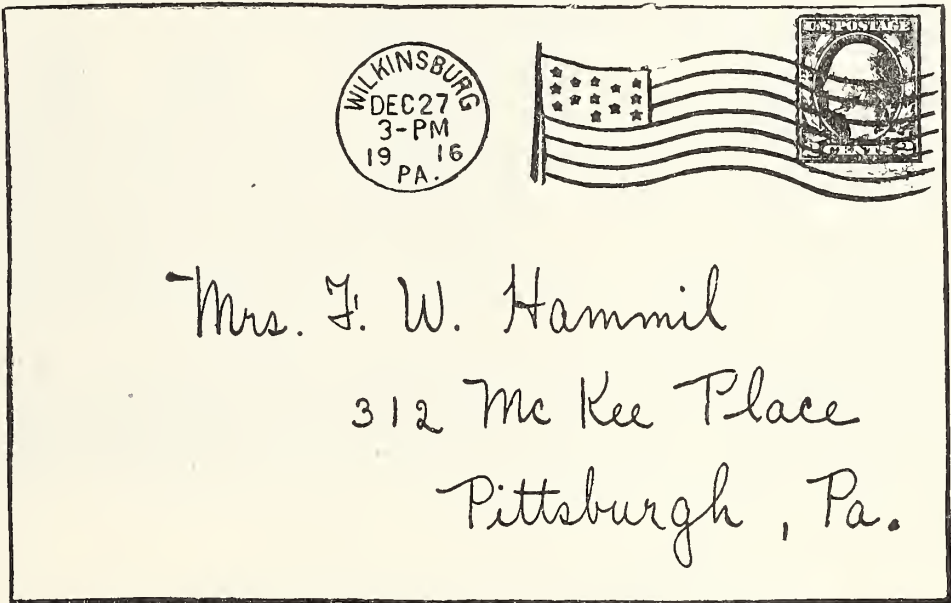 WILKINSBURG
DEC 27
3-PM
19 16
PA.
U.S. POSTAGE
2 CENTS 2
Mrs. F. W. Hammil
312 Mc Kee Place
Pittsburgh, Pa.